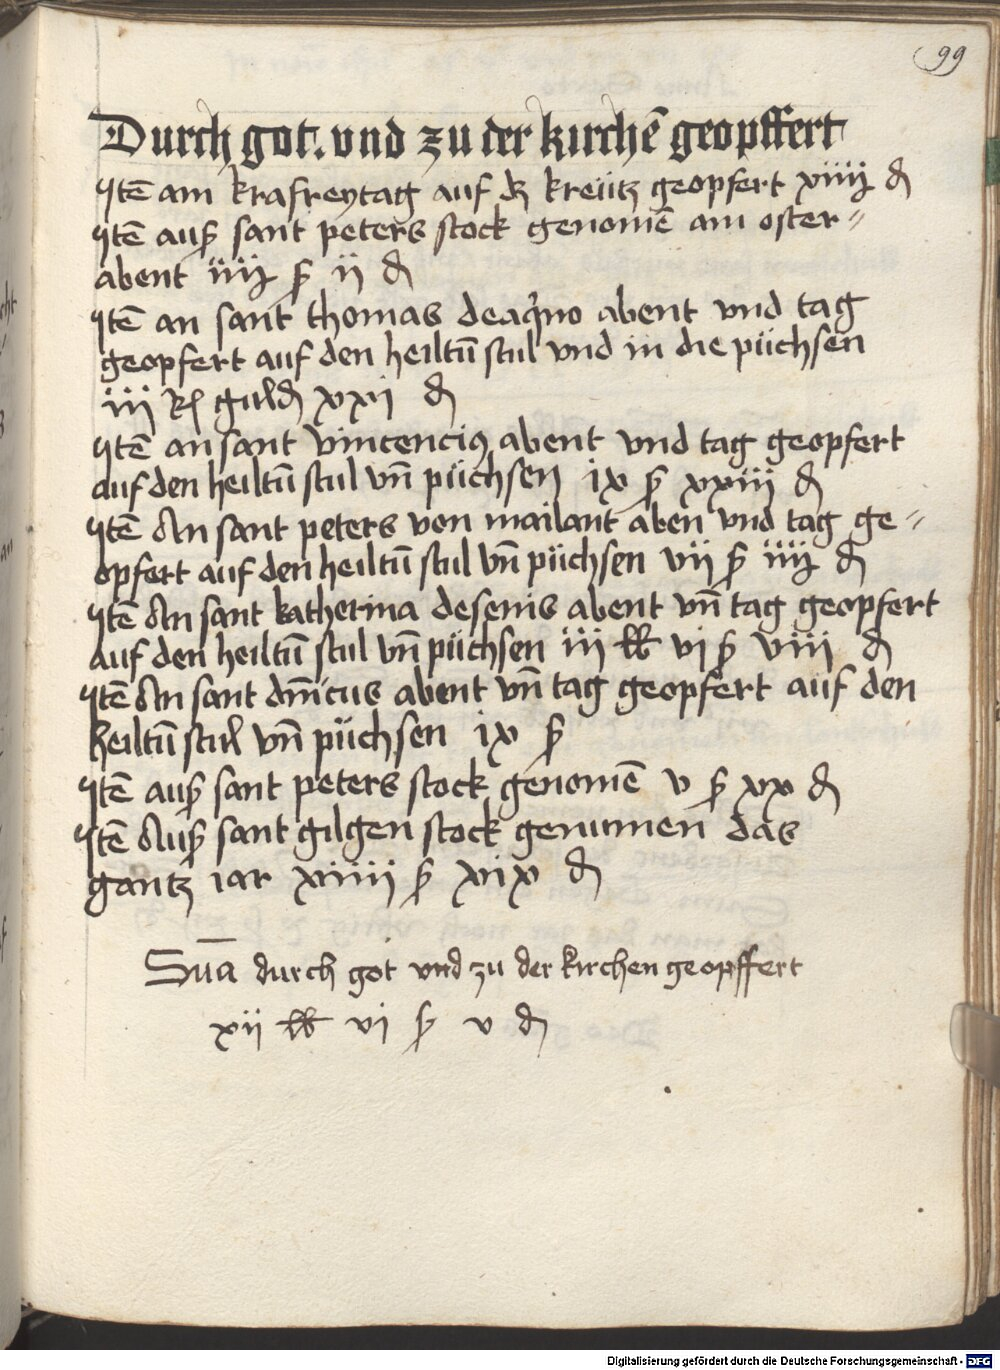 99
Durch got. vnd zu der kirchē geopffert
Itē am krafreytag auf dz kreütz geopfert xiiij ₰
Itē auß sant peters stock genomē am oster〃
abent iiij ß ij ₰
Itē an sant thomas deaq̇no abent vnd tag
geopfert auf den heiltū stul vnd in die püchsen
iij guld xxi ₰
Itē an sant vincencius abent vnd tag geopfert
auf den heiltū stul vn̄ püchsen ix ß xxiii ₰
Itē An sant peters von mailant aben vnd tag ge〃
opfert auf den heiltū stul vn̄ püchsen vii ß iiij ₰
Itē An sant katherina desenis abent vn̄ tag geopfert
auf den heiltū stul vn̄ püchsen iii ℔ vi ß viii ₰
Itē An sant dm̄icus abent vn̄ tag geopfert auf den
heiltū stul vn̄ püchsen ix ß
Itē auß sant peters stock genomē v ß xx ₰
Itē Auß sant gilgen stock genumen das
gantz iar xiiii ß xix ₰
Sūa durch got vnd zu der kirchen geopffert
xii ℔ vi ß v ₰
Digitalisierung gefördert durch die Deutsche Forschungsgemeinschaft - DFG